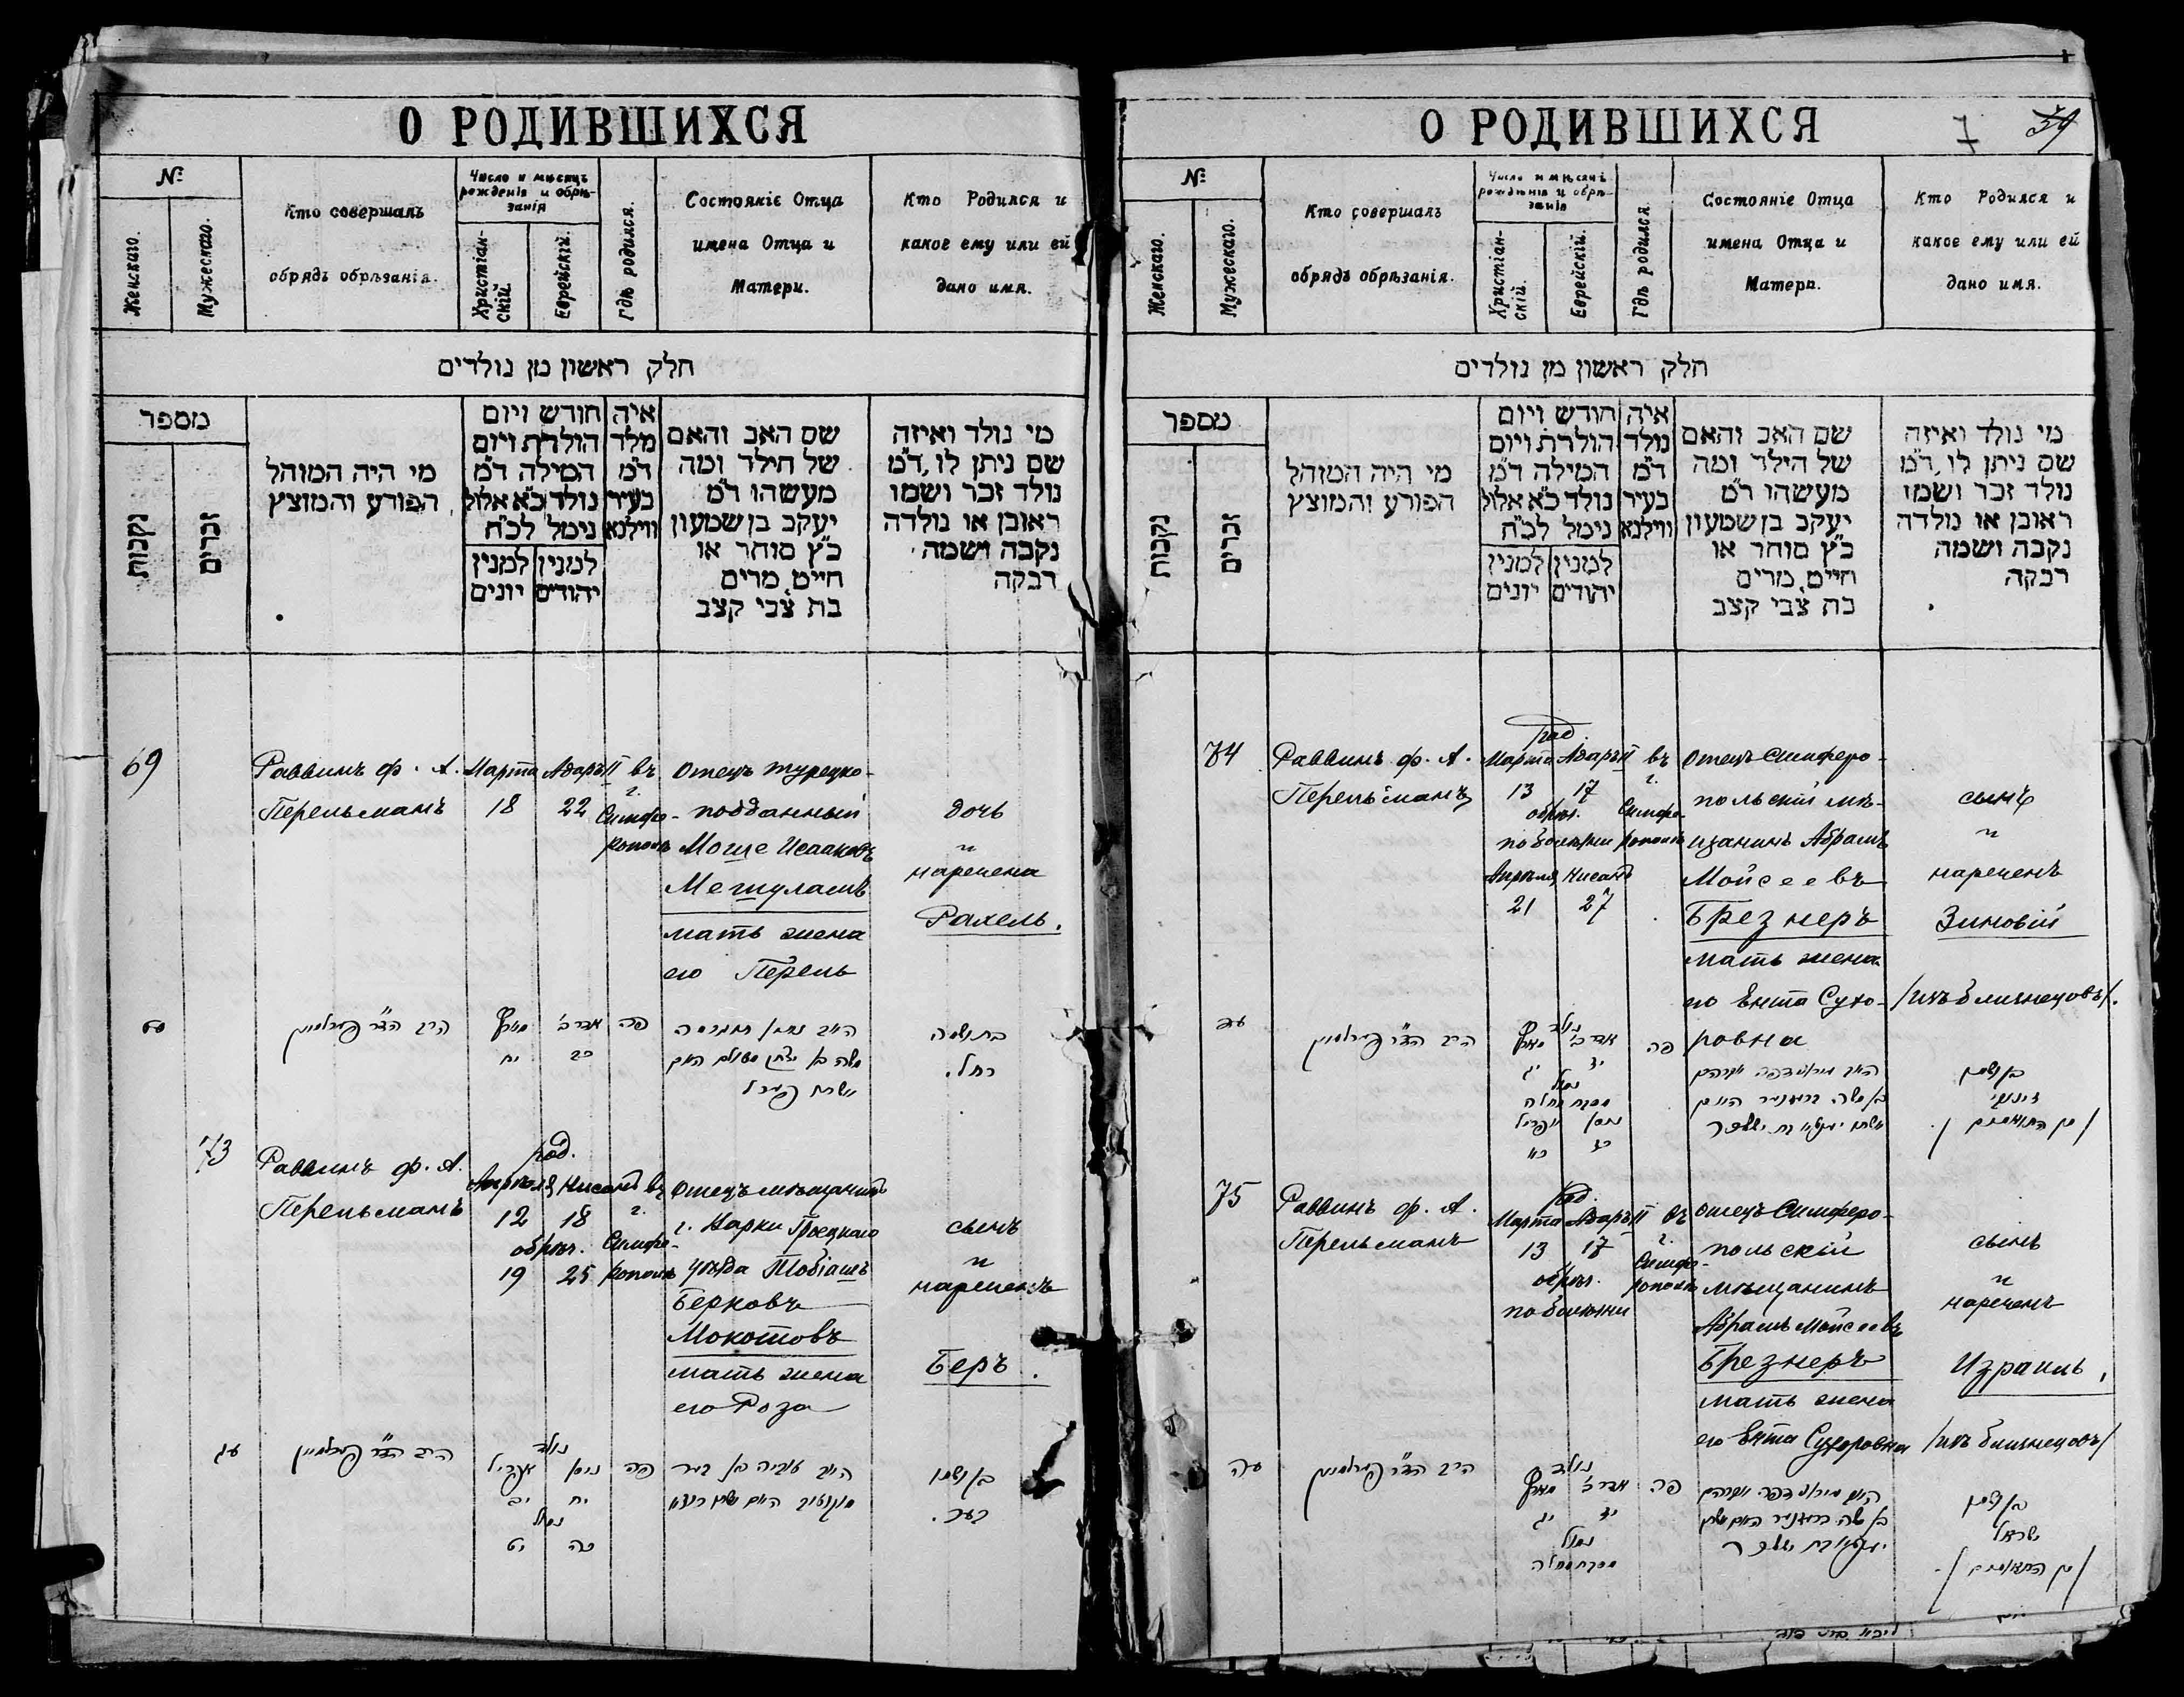 О РОДИВШИХСЯ
№
Женскаго.
Мужескаго.
Кто совершалъ
обрядъ обрѣзанія.
Число и мѣсяцъ
рожденія и обрѣ-
занія
Христіан-
скій.
Еврейскій.
Гдѣ родился.
Состояніе Отца
имена Отца и
Матери.
Кто Родился и
какое ему или ей
дано имя.
חלק ראשון מן נולדים
מספר
נקבות
זכרים
מי היה המוהל
הפורע והמוצץ
חודש ויום
הולדת ויום
המילה ד״מ
נולד כ״א אלול
נימל לכ״ח
למנין
יהודים
למנין
יונים
איה
מלד
ד״מ
בעיר
ווילנא
שם האב והאם
של הילד ומה
מעשהו ד״מ
יעקב בן שמעון
כ״ץ סוחר או
חייט, מרים
בת צבי קצב
מי נולד ואיזה
שם ניתן לו, ד״מ
נולד זכר ושמו
ראובן או נולדה
נקבה ושמה
רבקה
69
Раввинъ Ф. А.
Перельманъ
Марта
18
Адаръ II
22
въ
г.
Симфе-
рополѣ
Отецъ турецко-
подданный
Моше Исааковъ
Мешуламъ
мать жена
его Перель
дочь
и
наречена
Рахель.
הרב הד״ר פערלמאן
מארץ
יח
אדר ב׳
כב
פה
בת ושמה
רחל.
73
Раввинъ Ф. А.
Перельманъ
род.
Апрѣля
12
Нисанъ
18
обрѣз.
19
25
въ
г.
Симфе-
рополѣ
Отецъ мѣщанинъ
уѣзда Тобіашъ
Берковъ
Мокотовъ
мать жена
его Роза
сынъ
и
нареченъ
Беръ.
עג
הרב הד״ר פערלמאן
נולד
אפריל
יב
ניסן
יח
נמול
יט
כה
פה
בן ושמו
בער.
О РОДИВШИХСЯ
7
39
№
Женскаго.
Мужескаго.
Кто совершалъ
обрядъ обрѣзанія.
Число и мѣсяцъ
рожденія и обрѣ-
занія
Христіан-
скій.
Еврейскій.
Гдѣ родился.
Состояніе Отца
имена Отца и
Матери.
Кто Родился и
какое ему или ей
дано имя.
חלק ראשון מן נולדים
מספר
נקבות
זכרים
מי היה המוהל
הפורע והמוצץ
חודש ויום
הולדת ויום
המילה ד״מ
נולד כ״א אלול
נימל לכ״ח
למנין
יהודים
למנין
יונים
איה
נולד
ד״מ
בעיר
ווילנא
שם האב והאם
של הילד ומה
מעשהו ד״מ
יעקב בן שמעון
כ״ץ סוחר או
חייט, מרים
בת צבי קצב
מי נולד ואיזה
שם ניתן לו, ד״מ
נולד זכר ושמו
ראובן או נולדה
נקבה ושמה
רבקה
74
Раввинъ Ф. А.
Перельманъ
род.
Марта
13
Адаръ II
17
обрѣз.
по болѣзни
Апрѣля
21
Нисанъ
27
въ
г.
Симфе-
рополѣ
Отецъ Симферо-
польскій мѣ-
щанинъ Абрамъ
Мойсеевъ
Брезнеръ
мать жена
его Ента Сухо-
ровна
сынъ
и
нареченъ
Зиновій
/изъ близнецовъ/.
עד
הרב הד״ר פערלמאן
נולד
מארץ
יג
אדר ב׳
יז
נמול
מפני מחלה
אפריל
כא
ניסן
כז
פה
בן ושמו
זינווי
/מן התאומים/.
75
Раввинъ Ф. А.
Перельманъ
род.
Марта
13
Адаръ II
17
обрѣз.
по болѣзни
въ
г.
Симфе-
рополѣ
Отецъ Симферо-
польскій
мѣщанинъ
Абрамъ Мойсеевъ
Брезнеръ
мать жена
его Ента Сухоровна
сынъ
и
нареченъ
Израиль,
/изъ близнецовъ/
עה
הרב הד״ר פערלמאן
נולד
מארץ
יג
אדר ב׳
יז
נמול
פה
בן ושמו
ישראל
/מן התאומים/.